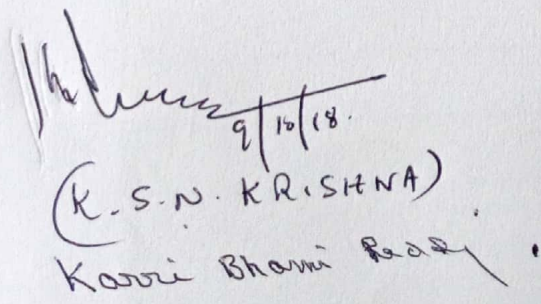 9/10/18.
(K.S.N. KRISHNA)
Karri Bhami Reddy